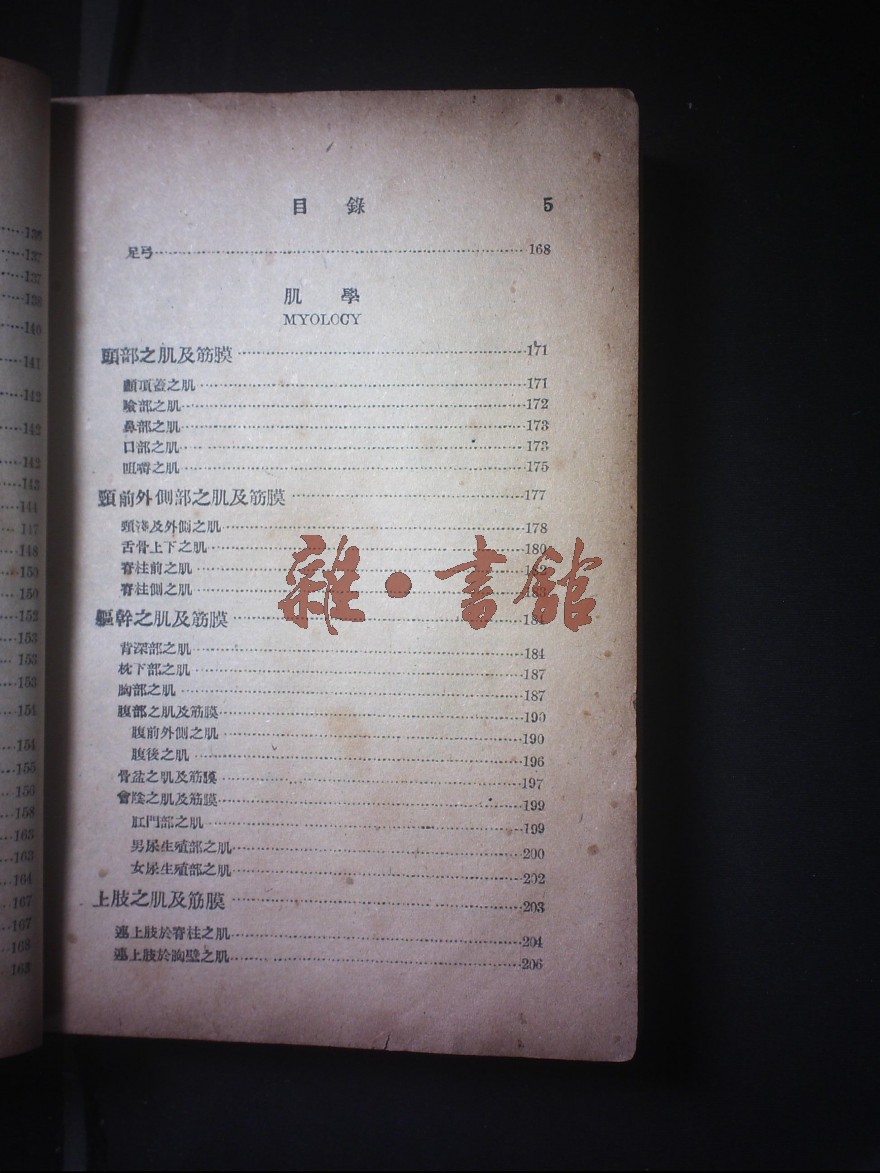 136
137
137
138
140
141
142
142
142
143
144
147
148
150
150
152
153
153
153
154
154
155
156
158
163
163
164
167
167
168
168
目錄 5
足弓 168
肌學
MYOLOGY
頭部之肌及筋膜 171
顱頂蓋之肌 171
瞼部之肌 172
鼻部之肌 173
口部之肌 173
咀嚼之肌 175
頸前外側部之肌及筋膜 177
頸淺及外側之肌 178
舌骨上下之肌 180
脊柱前之肌 182
脊柱側之肌 183
軀幹之肌及筋膜 184
背深部之肌 184
枕下部之肌 187
胸部之肌 187
腹部之肌及筋膜 190
腹前外側之肌 190
腹後之肌 196
骨盆之肌及筋膜 197
會陰之肌及筋膜 199
肛門部之肌 199
男尿生殖部之肌 200
女尿生殖部之肌 202
上肢之肌及筋膜 203
連上肢於脊柱之肌 204
連上肢於胸壁之肌 206
雜·書館